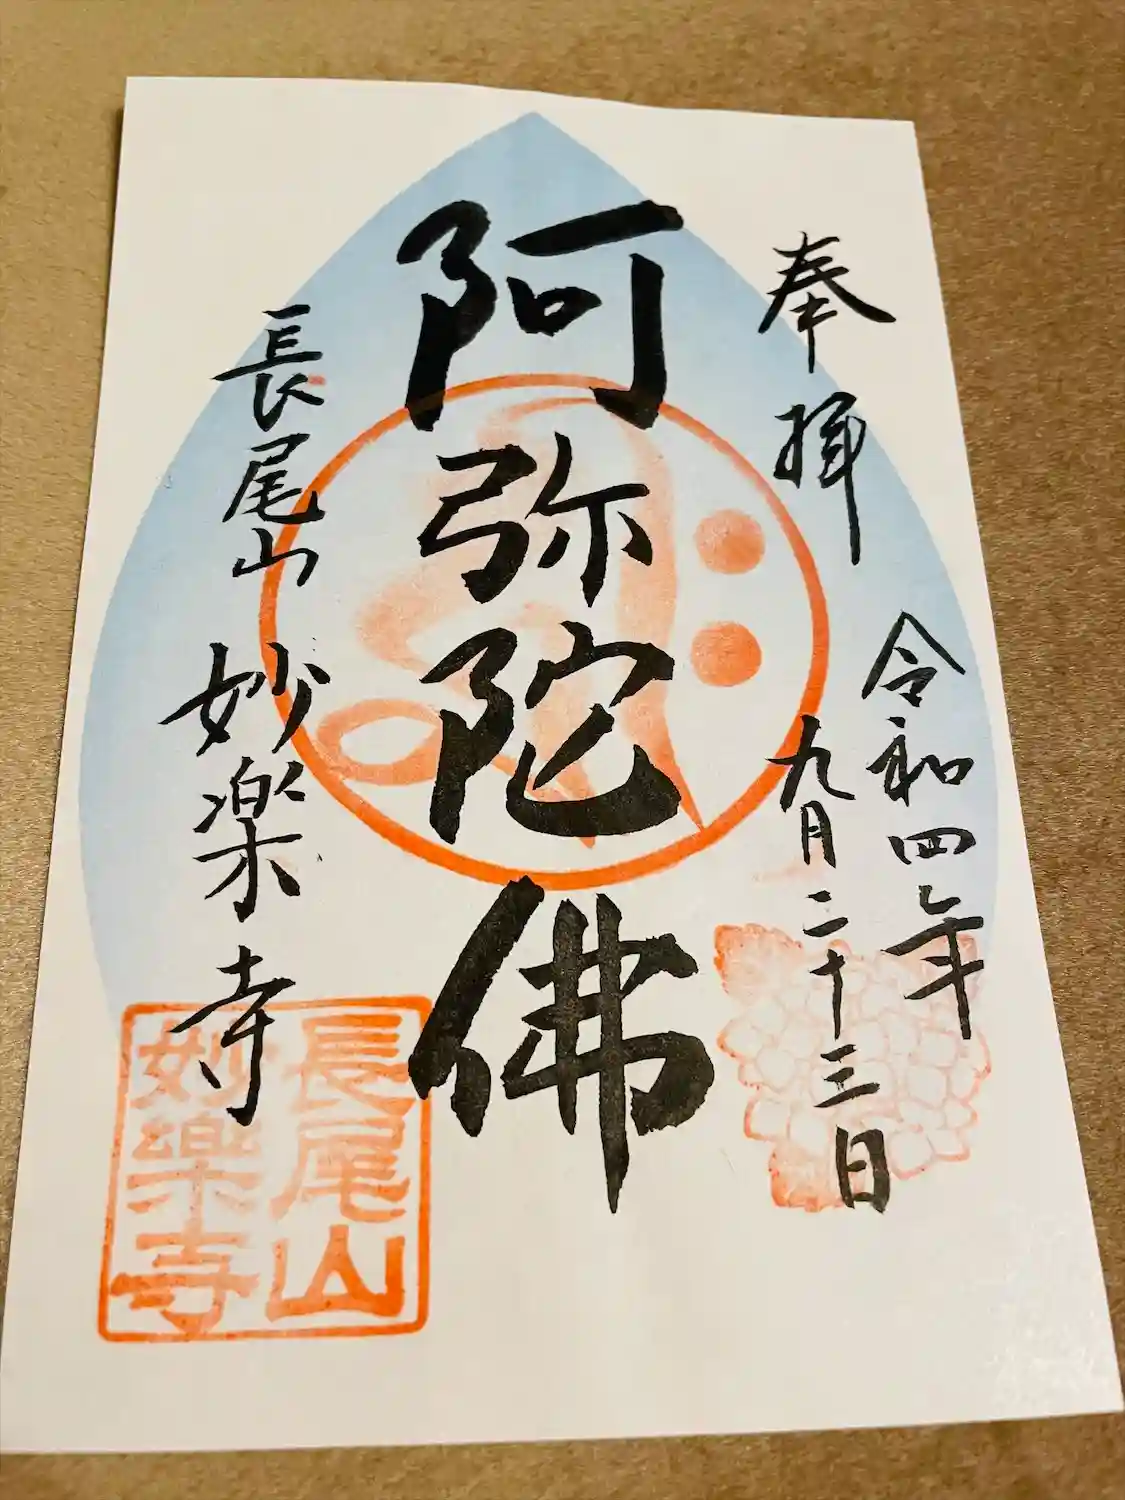 奉拝
令和四年
九月二十三日
阿弥陀佛
長尾山 妙楽寺
長尾山
妙楽寺